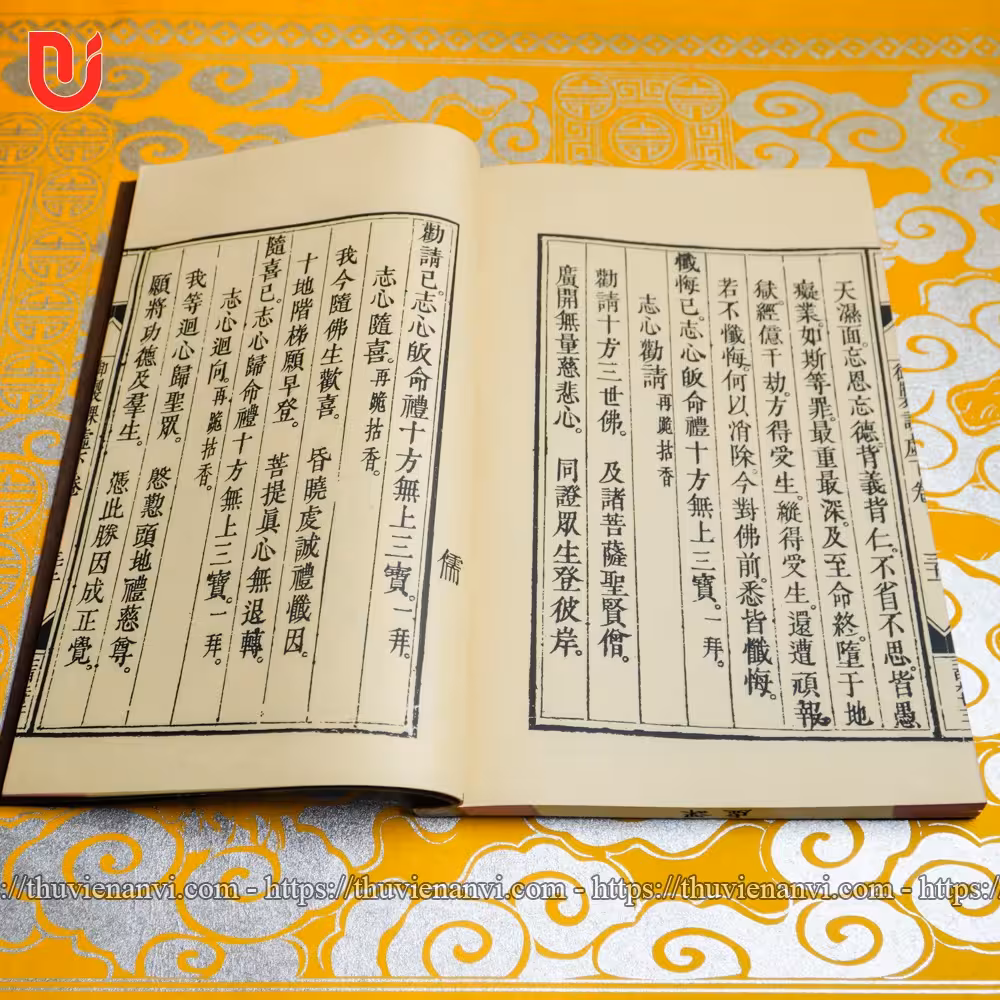 天濕面。忘恩忘德。背義背仁。不省不思。皆愚
癡業。如斯等罪。最重最深。及至命終。墮于地
獄。經億千劫。方得受生。縱得受生。還遭頑報
若不懺悔。何以消除。今對佛前。悉皆懺悔。
懺悔已。志心皈命禮十方無上三寶。一拜。
志心勸請再跪拈香
勸請十方三世佛。 及諸菩薩聖賢僧。
廣開無量慈悲心。 同證眾生登彼岸。
儒
勸請已。志心皈命禮十方無上三寶。一拜。
志心隨喜。再跪拈香。
我今隨佛生歡喜。 昏曉虔誠禮懺因。
十地階梯願早登。 菩提真心無退轉。
隨喜已。志心歸命禮十方無上三寶。一拜。
志心迴向。再跪拈香。
我等迴心歸聖眾。 慇懃頭地禮慈尊。
願將功德及羣生。 憑此勝因成正覺。
https://thuvienanvi.com - https://thuvienanvi.com - https://thuvienanvi.com